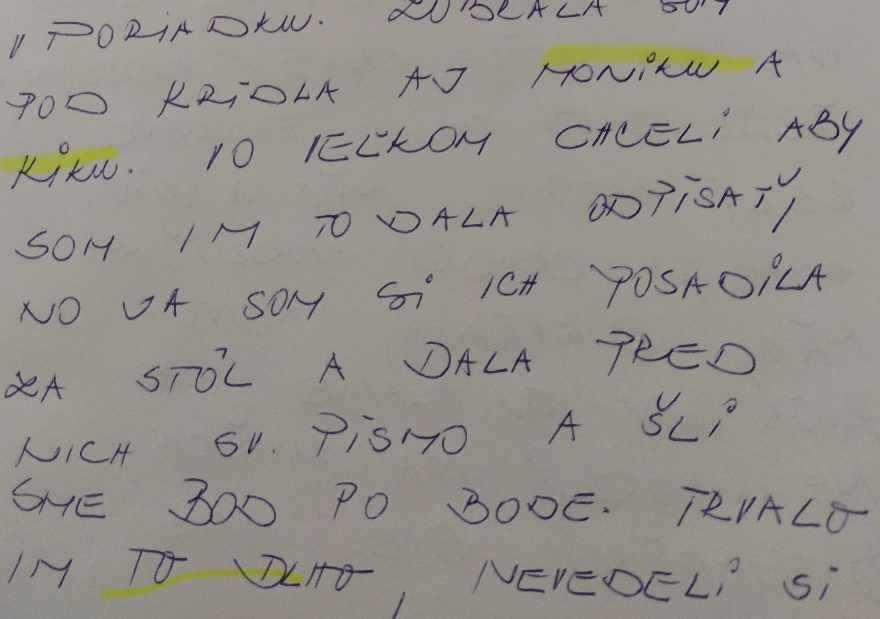 V PORIADKU. ZOBRALA SOM
POD KRÍDLA AJ MONIKU A
KIKU. VO VEĽKOM CHCELI ABY
SOM IM TO DALA ODPÍSAŤ,
NO JA SOM SI ICH POSADILA
ZA STÔL A DALA PRED
NICH SV. PÍSMO A ŠLI
SME BOD PO BODE. TRVALO
IM TO DLHO, NEVEDELI SI